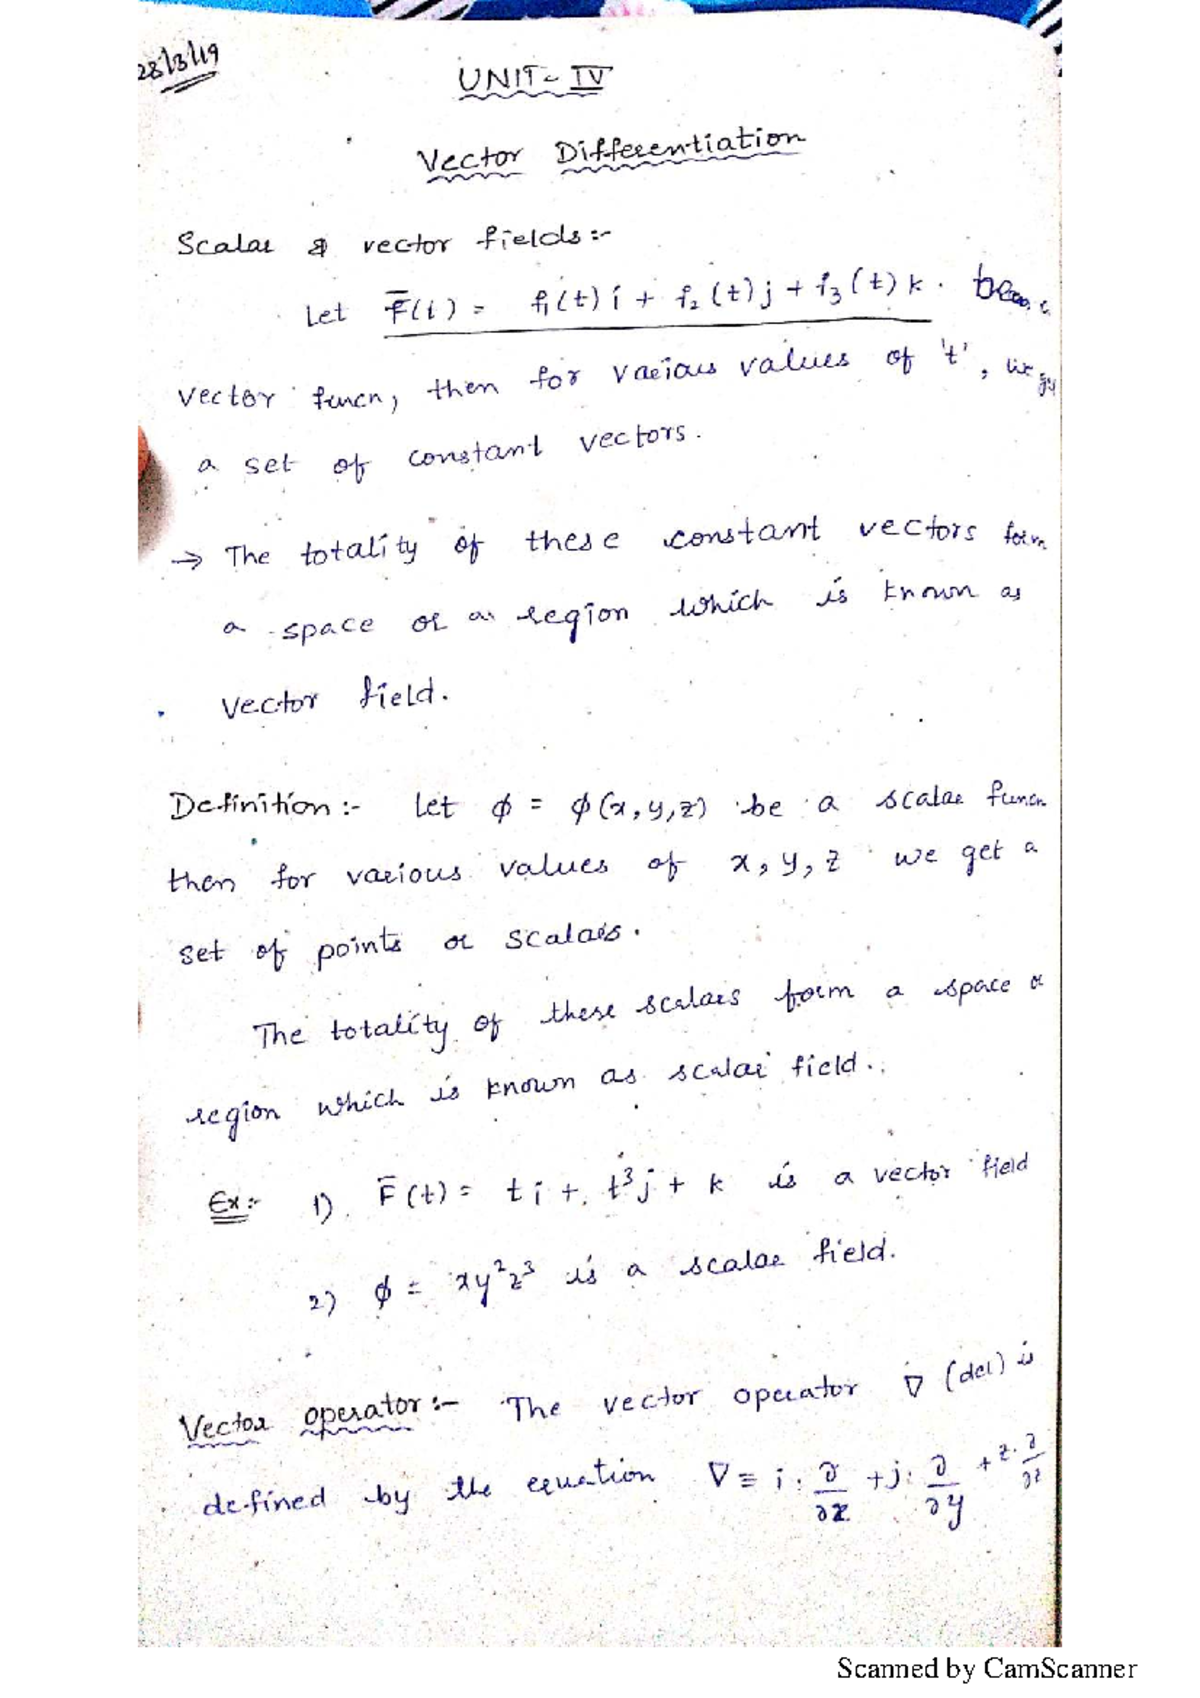 28/3/19
UNIT - IV
Vector Differentiation
Scalar & vector fields:-
Let F̅(t) = f₁(t) i + f₂(t) j + f₃(t) k. be a
vector funcn, then for various values of 't', we get
a set of constant vectors.
→ The totality of these constant vectors form
a space or a region which is known as
vector field.
Definition:- Let ϕ = ϕ(x,y,z) be a scalar funcn
then for various values of x, y, z we get a
set of points or scalars.
The totality of these scalars form a space or
region which is known as scalar field.
Ex:- 1). F̅(t) = t i + t³j + k is a vector field
2) ϕ = xy²z³ is a scalar field.
Vector operator:- The vector operator ∇ (del) is
defined by the equation ∇ ≡ i. ∂/∂x + j. ∂/∂y + z. ∂/∂z
Scanned by CamScanner